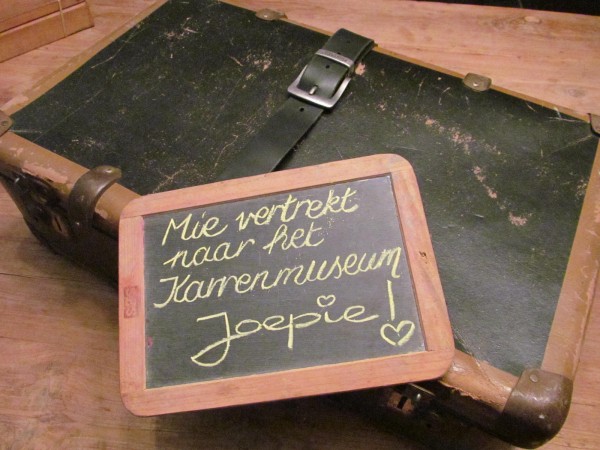 Mie vertrekt
naar het
Karrenmuseum
Joepie!